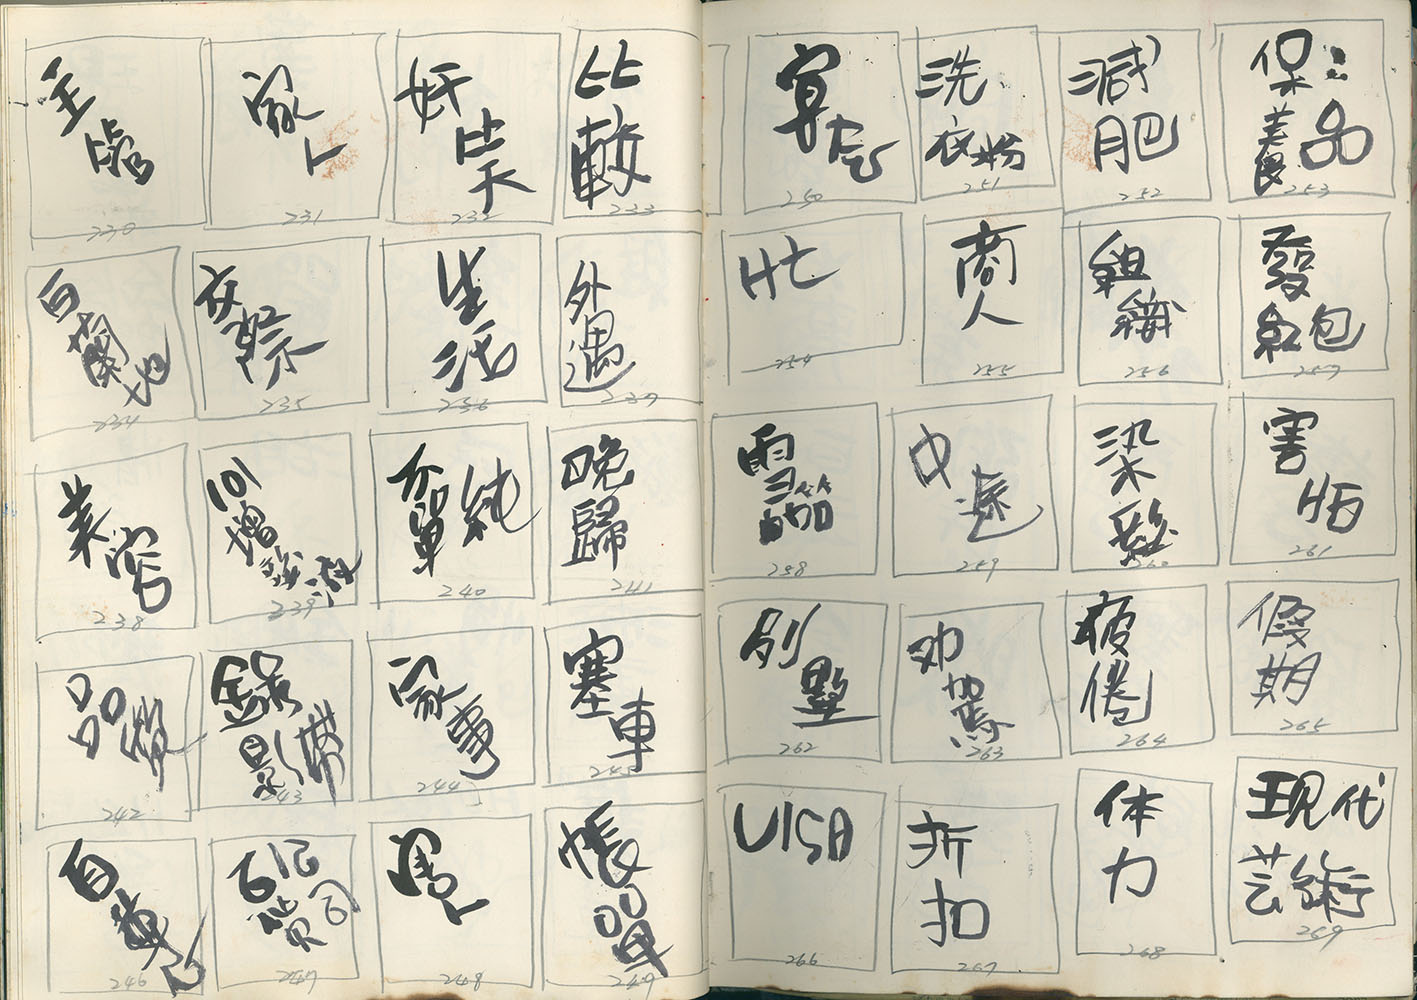 主管
230
231
奸笑
232
比較
233
白蘭地
234
衣
235
生活
236
外遇
237
美容
238
101
增
239
不單純
240
晚歸
241
品質
242
錄影帶
243
家事
244
塞車
245
自
246
百貨公司
247
248
帳單
249
250
洗衣粉
251
減肥
252
保養品
253
忙
254
商人
255
組織
256
發紅包
257
雪茄
258
中途
259
染髮
260
害怕
261
別墅
262
263
疲倦
264
假期
265
VISA
266
折扣
267
体力
268
現代艺術
269